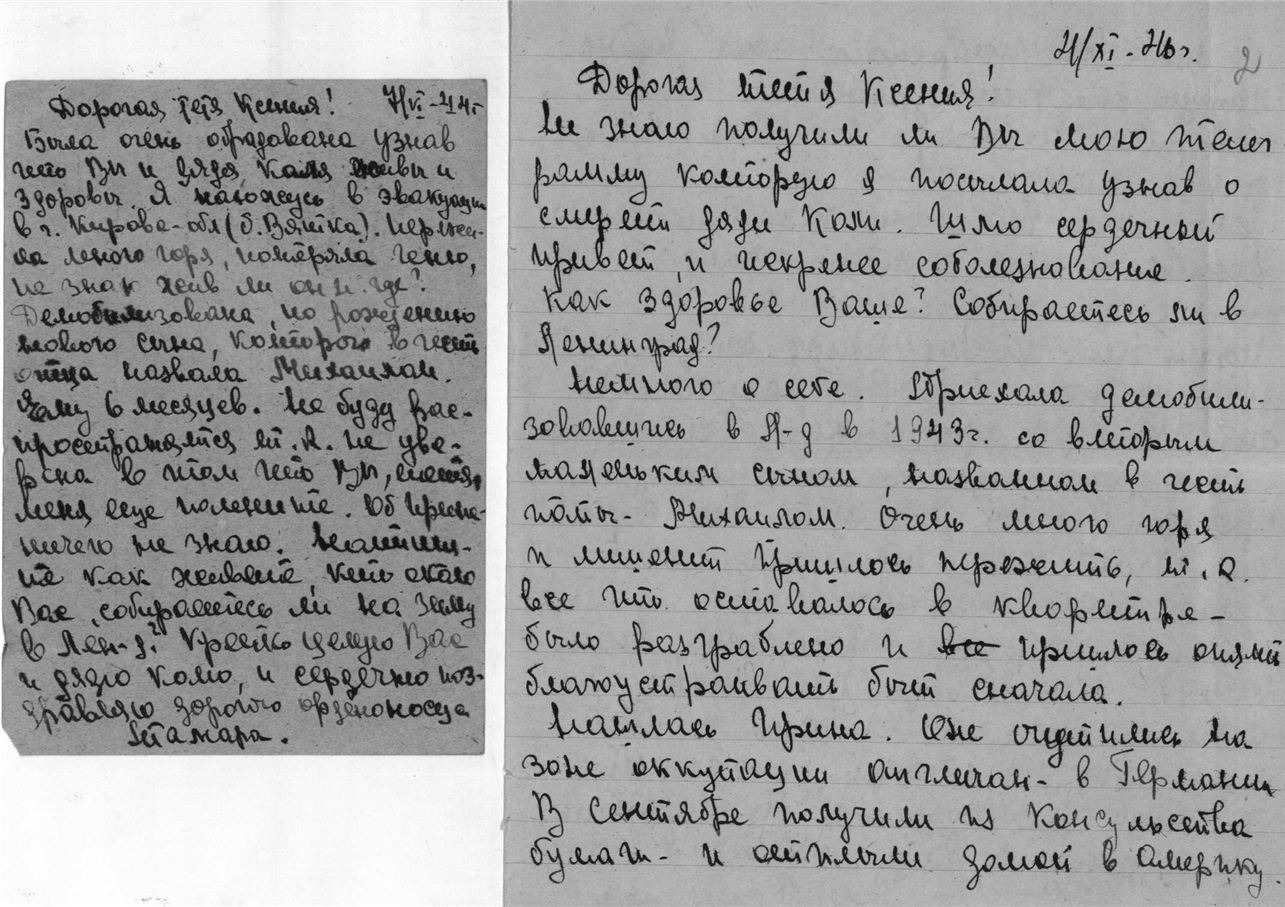 Дорогая тетя Ксения! 7/VI-44г
Была очень обрадована узнав
что Вы и дядя Коля живы и
здоровы. Я нахожусь в эвакуации
в г. Кирове-обл (б. Вятка). Пережи-
ла много горя, потеряла Геню,
не знаю жив ли он и где?
Демобилизована, по рождению
нового сына, которого в честь
отца назвала Михаилом.
Ему 6 месяцев. Не буду рас-
пространяться т.к. не уве-
рена в том что Вы, тетя,
меня еще помните. Об Ирине
ничего не знаю. Напиши-
те как живете, кто около
Вас, собираетесь ли на зиму
в Лен-д? Крепко целую Вас
и дядю Колю, и сердечно поз-
дравляю дорогого орденоносца
Тамара.
21/XI-46г. 2
Дорогая тетя Ксения!
Не знаю получили ли Вы мою телег
рамму которую я посылала узнав о
смерти дяди Коли. Шлю сердечный
привет, и искренее соболезнование.
Как здоровье Ваше? Собираетесь ли в
Ленинград?
Немного о себе. Приехала демобили-
зовавшись в Л-д в 1943г. со вторым
маленьким сыном, названном в честь
папы- Михаилом. Очень много горя
и лишений пришлось пережить, т.к.
все что оставалось в квартире-
было разграблено и все пришлось опять
благоустраивать быт сначала.
Нашлась Ирина. Они очутились на
зоне оккупации англичан- в Германии
В Сентябре получили из Консульства
бумаги- и отплыли домой в Америку.